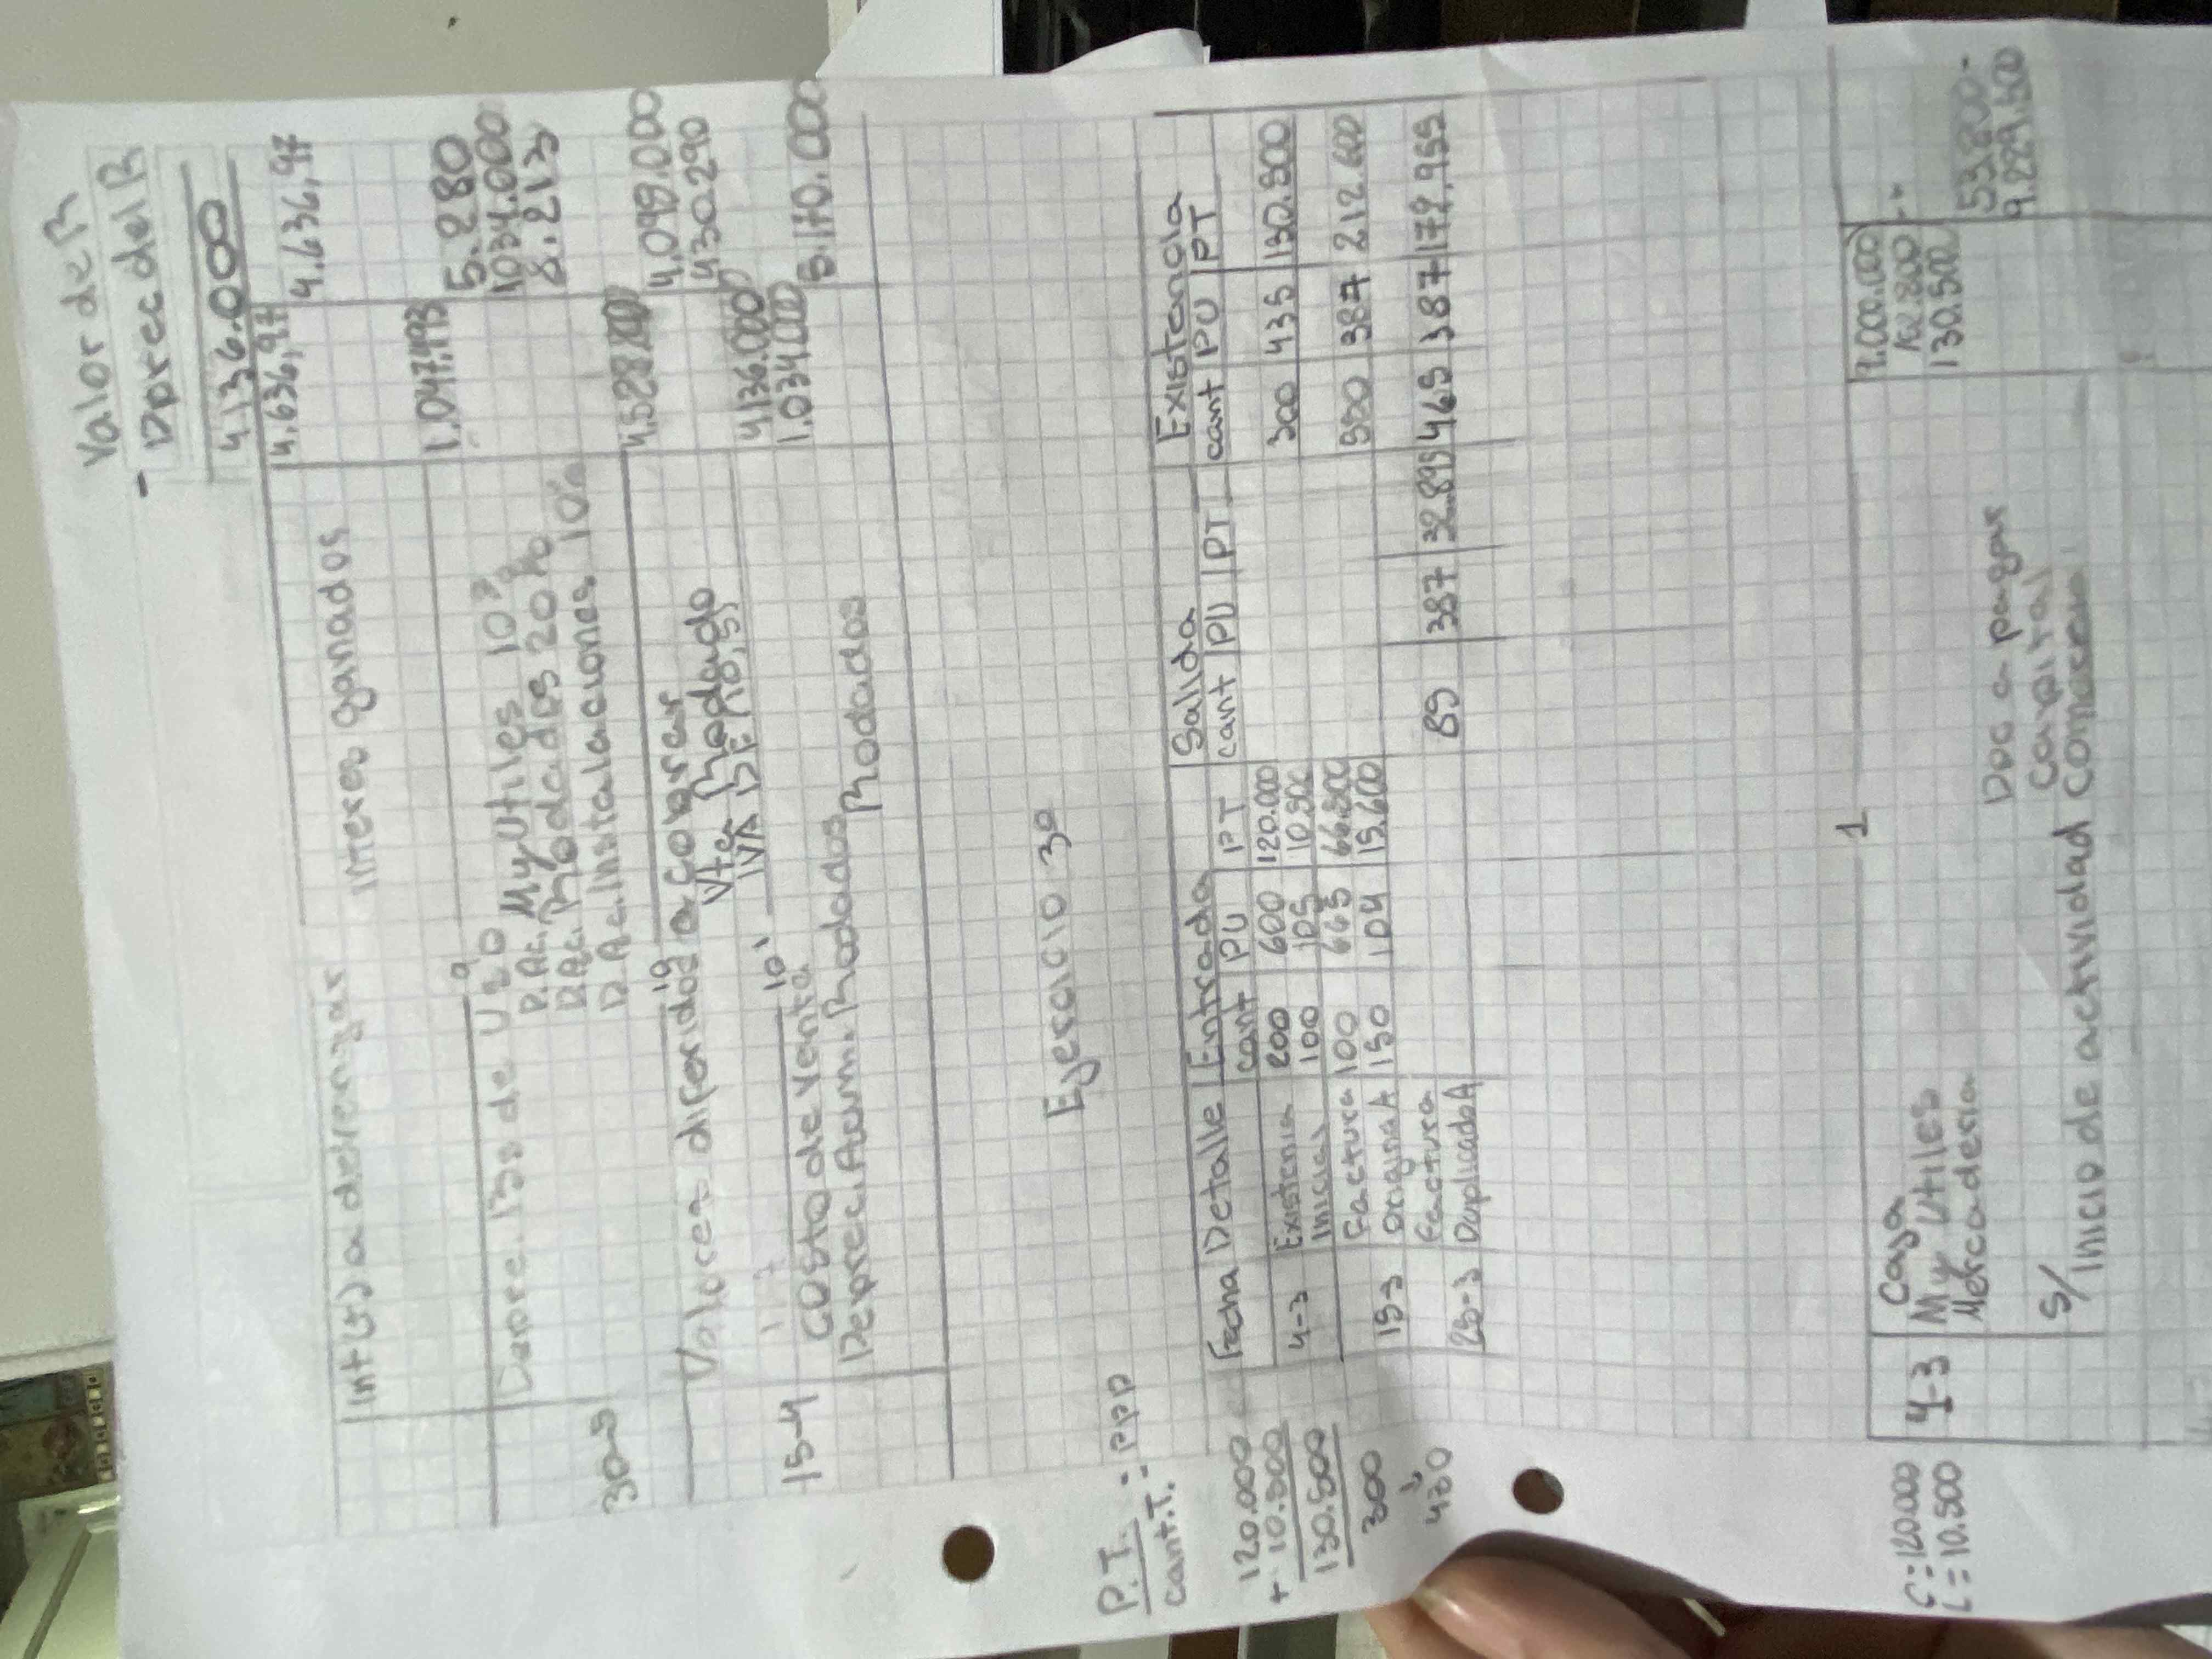 Valor de R
- Deprec del R
4.136.000
Int (+) a devengar 4.636,97
interes ganados 4.636,97
9
30-5 Depre. Bs de Uso 1.047.493
D.Ac. My Utiles 10% 5.280
D.Ac. Rodados 20% 1034.000
D.Ac. Instalaciones 10% 8.213
10
Valores diferidos a cobrar
Vta Rodado 4.098.000
IVA DF 10,5% 430.290
10'
15-4 Costo de Venta 4.136.000
Deprec. Acum. Rodados 1.034.000
Rodados 5.170.000
Ejercicio 3º
P.T. = PPP
cant.T.
Fecha Detalle Entrada Salida Existencia
cant PU PT cant PU PT cant PU PT
4-3 Existencia 200 600 120.000 300 435 130.500
Inicial 100 105 10.500
15-3 Factura 100 665 66.500 550 387 212.600
Original A 150 104 15.600
25-3 Factura Duplicado A 85 387 32.895 465 387 179.955
120.000
+ 10.500
130.500
300
↓
430
1
C = 120.000
L = 10.500
4-3 Caja
My Utiles
Mercaderia 130.500
Doc a pagar 53.800-
Capital 9.229.500
S/
Inicio de actividad comercial